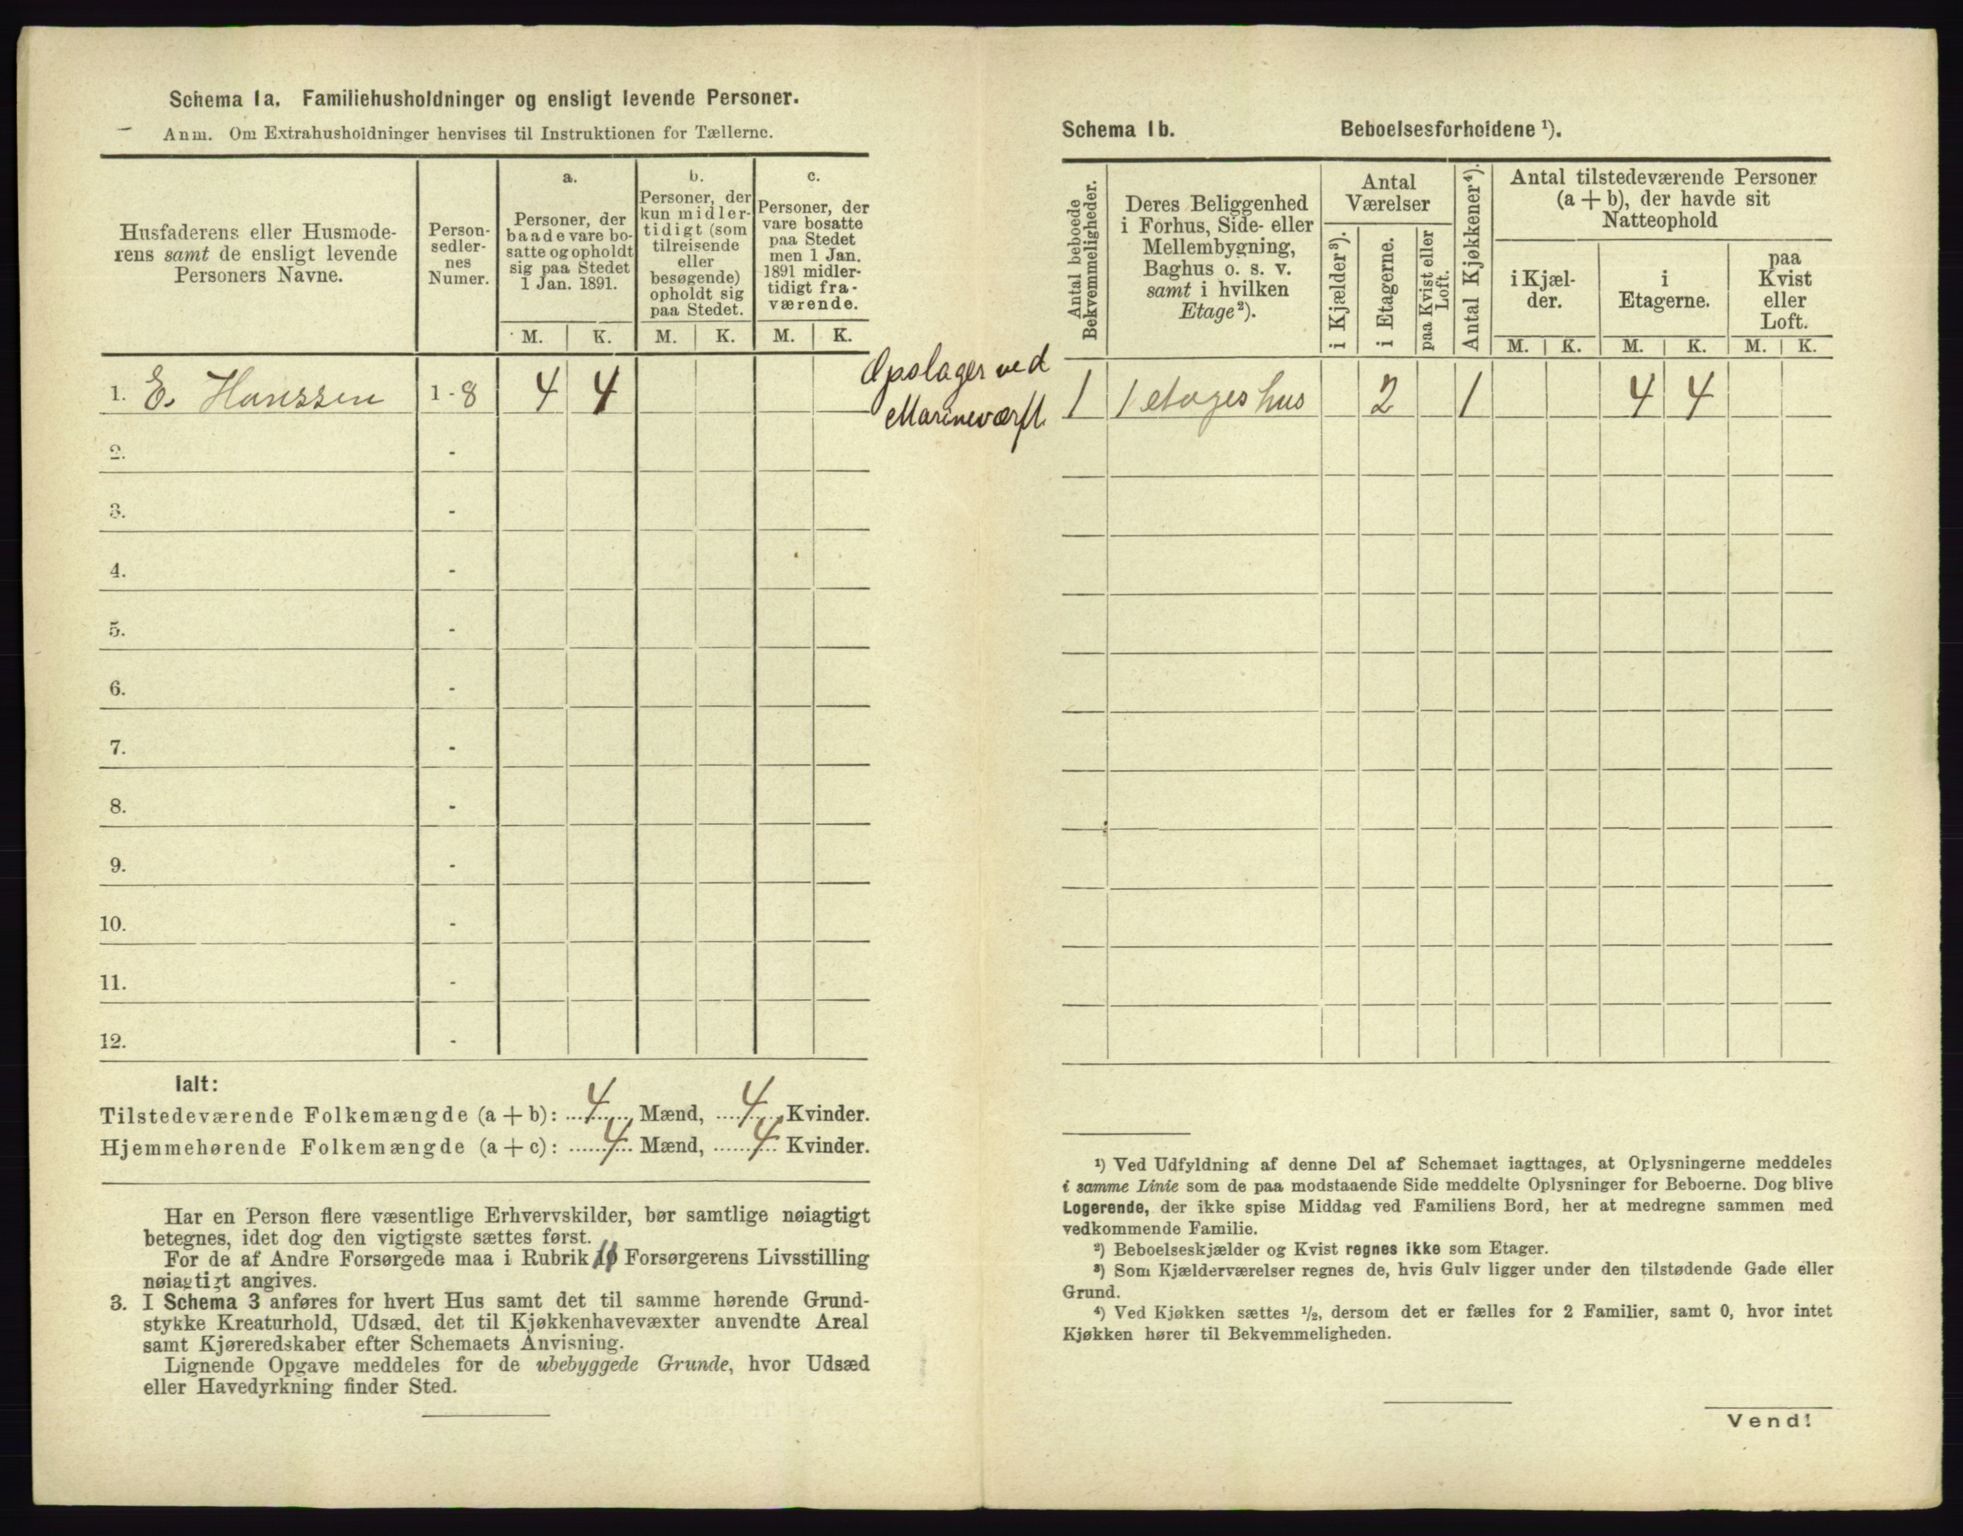 Schema 1a. Familiehusholdninger og ensligt levende Personer.
Anm. Om Extrahusholdninger henvises til Instruktionen for Tællerne.
Husfaderens eller Husmode-
rens samt de ensligt levende
Personers Navne.
Person-
sedler-
nes
Numer.
a.
Personer, der
baade vare bo-
satte og opholdt
sig paa Stedet
1 Jan. 1891.
b.
Personer, der
kun midler-
tidigt (som
tilreisende
eller
besøgende)
opholdt sig
paa Stedet.
c.
Personer, der
vare bosatte
paa Stedet
men 1 Jan.
1891 midler-
tidigt fra-
værende.
M. K. M. K. M. K.
1. E. Hanssen 1-8 4 4
2. -
3. -
4. -
5. -
6. -
7. -
8. -
9. -
10. -
11. -
12. -
Ialt:
Tilstedeværende Folkemængde (a + b): 4 Mænd, 4 Kvinder.
Hjemmehørende Folkemængde (a + c): 4 Mænd, 4 Kvinder.
Har en Person flere væsentlige Erhvervskilder, bør samtlige nøiagtigt
betegnes, idet dog den vigtigste sættes først.
For de af Andre Forsørgede maa i Rubrik Forsørgerens Livsstilling
nøiagtigt angives.
3. I Schema 3 anføres for hvert Hus samt det til samme hørende Grund-
stykke Kreaturhold, Udsæd, det til Kjøkkenhavevæxter anvendte Areal
samt Kjøreredskaber efter Schemaets Anvisning.
Lignende Opgave meddeles for de ubebyggede Grunde, hvor Udsæd
eller Havedyrkning finder Sted.
Opslager ved
Marineværft.
Schema 1b. Beboelsesforholdene ¹).
Antal beboede
Bekvemmeligheder.
Deres Beliggenhed
i Forhus, Side- eller
Mellembygning,
Baghus o. s. v.
samt i hvilken
Etage²).
Antal
Værelser
i Kjælder³).
i Etagerne.
paa Kvist eller
Loft.
Antal Kjøkkener⁴).
Antal tilstedeværende Personer
(a + b), der havde sit
Natteophold
i Kjæl-
der.
i
Etagerne.
paa
Kvist
eller
Loft.
M. K. M. K. M. K.
1 1 etages hus 2 1 4 4
¹) Ved Udfyldning af denne Del af Schemaet iagttages, at Oplysningerne meddeles
i samme Linie som de paa modstaaende Side meddelte Oplysninger for Beboerne. Dog blive
Logerende, der ikke spise Middag ved Familiens Bord, her at medregne sammen med
vedkommende Familie.
²) Beboelseskjælder og Kvist regnes ikke som Etager.
³) Som Kjælderværelser regnes de, hvis Gulv ligger under den tilstødende Gade eller
Grund.
⁴) Ved Kjøkken sættes ¹/₂, dersom det er fælles for 2 Familier, samt 0, hvor intet
Kjøkken hører til Bekvemmeligheden.
Vend!